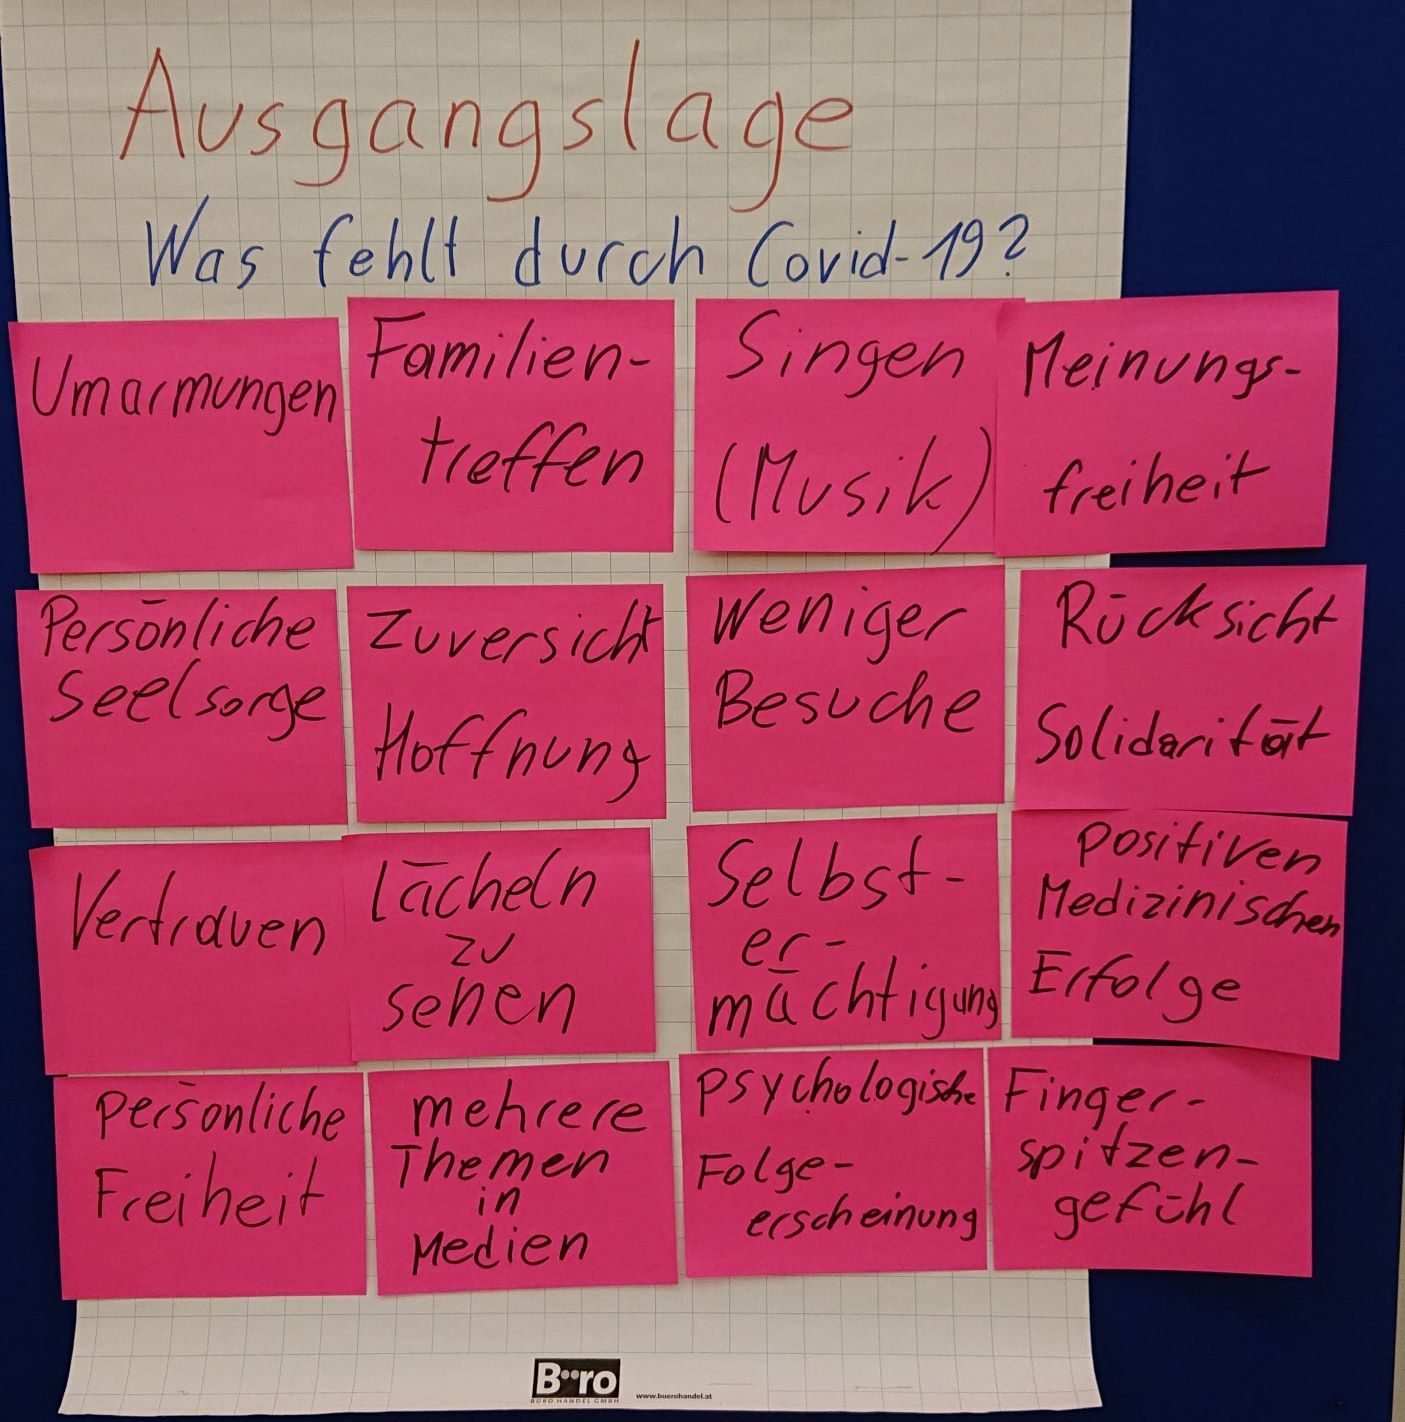 Ausgangslage
Was fehlt durch Covid-19?
Umarmungen
Familien-
treffen
Singen
(Musik)
Meinungs-
freiheit
Persönliche
Seelsorge
Zuversicht
Hoffnung
Weniger
Besuche
Rücksicht
Solidarität
Vertrauen
lächeln
zu
sehen
Selbst-
er-
mächtigung
positiven
Medizinischen
Erfolge
persönliche
Freiheit
mehrere
Themen
in
Medien
psychologische
Folge-
erscheinung
Finger-
spitzen-
gefühl
Büro
BÜRO HANDEL GMBH
www.buerohandel.at